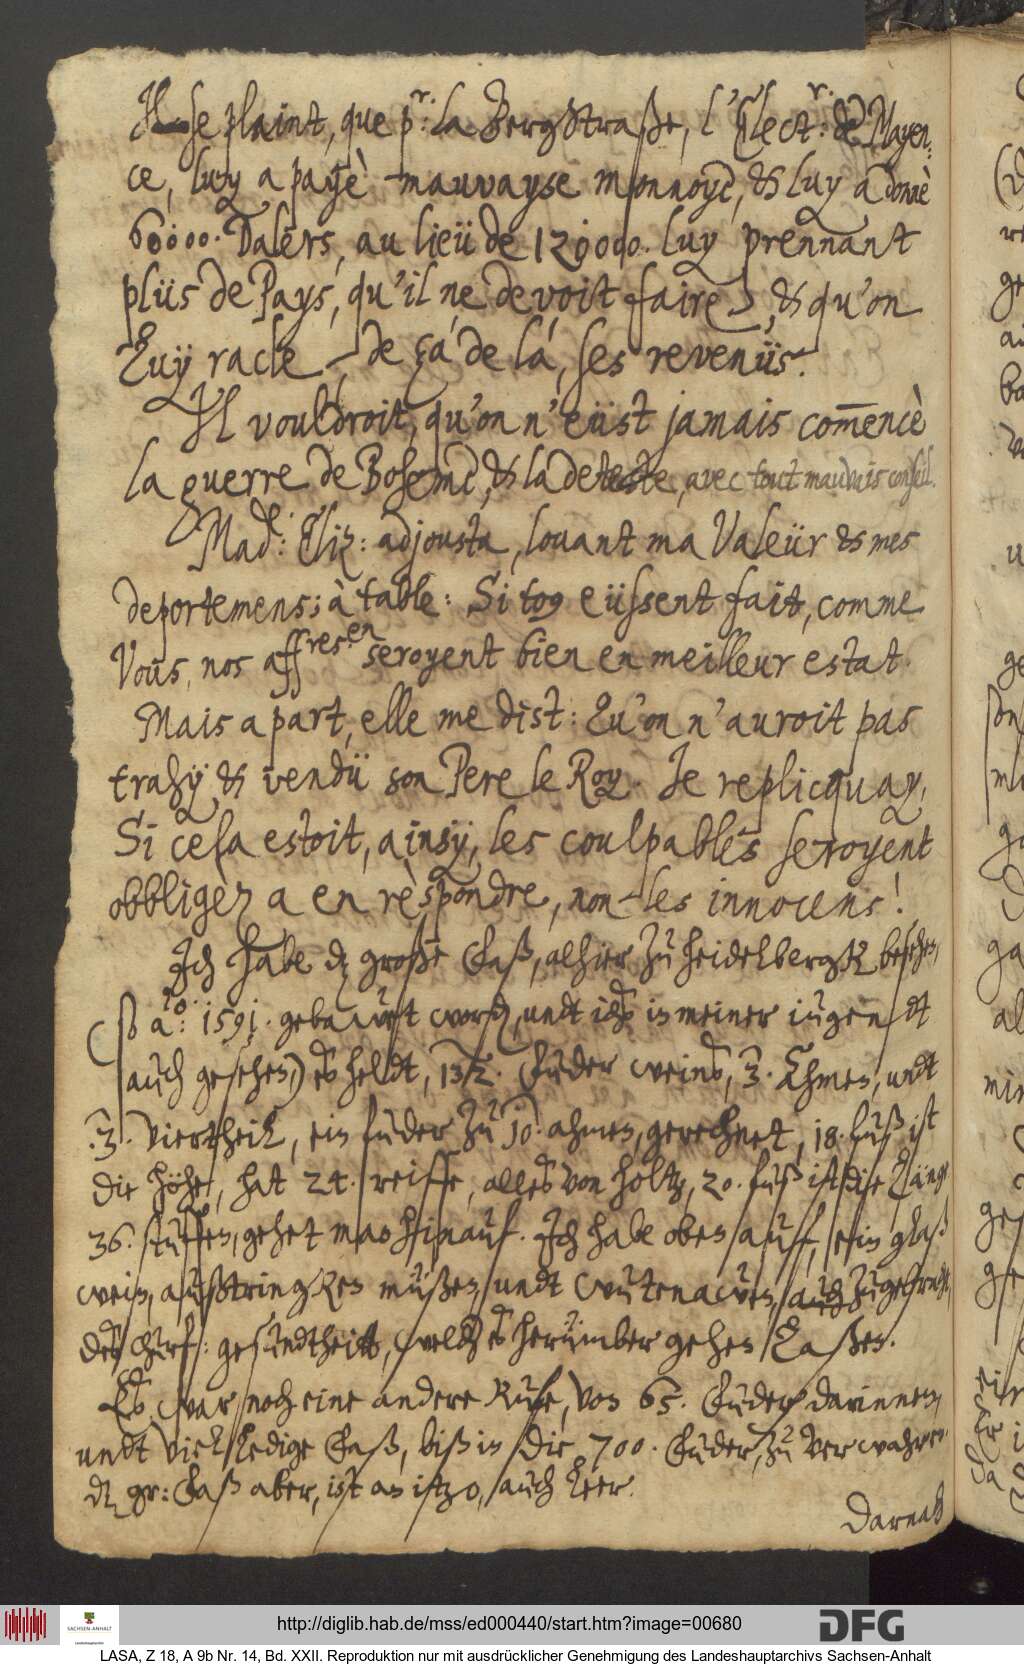 Il se plaint, que pr: la BergStraße, l'Elect.r: de Mayen:
ce, luy a payè mauvayse monnoye, & luy a donnè
60000. Dalers, au lieü de 120000. luy prennant
plüs de Pays, qu'il ne devoit faire, & qu'on
Luÿ racle, de çá de lá, ses revenüs.
Il vouldroit, qu'on n'eüst jamais com̄encè
la guerre de Boheme, & la deteste, avec tout mauvais conseil.
Mad.e: Eliz: adjousta, louant ma Valeür & mes
deportemens; à table: Si to9 eüssent fait, comme
Vous, nos affres. en seroyent bien en meilleur estat.
Mais a part, elle me dist: Qu'on n'auroit pas
trahÿ & vendü son Pere le Roy. Je replicquay,
Si cela estoit, ainsÿ, les coulpables seroyent
obbligèz a en rèspondre, non les innocens!
Ich habe dz große Faß, alhier zu Heidelbergk besehen,
(so ao: 1591. gebawet worden, undt ichs in meiner iugendt
auch gesehen,) es heldt, 132. Fuder weins, 3. Ehmen, undt
.3. Viertheil, ein fuder zu 10. ahmen, gerechnet, 18. fuß ist
die höhe, hat 24. reiffe, alles von holtz, 20. fuß ist die Länge
36. stuffen, gehet man hinauf. Ich habe oben auff, ein glaß
wein, außtrincken müßen, undt auch zugebracht,
des Churf: gesundtheitt, welch es herumber gehen Laßen.
Es war noch eine andere Kufe, von 65. Fuder darinnen,
undt viel Ledige Faß, biß in die 700. Fuder, zu verwahren.
dz gr: Faß aber, ist an itzo, auch Leer.
Darnach
http://diglib.hab.de/mss/ed000440/start.htm?image=00680
SACHSEN-ANHALT
DFG
LASA, Z 18, A 9b Nr. 14, Bd. XXII. Reproduktion nur mit ausdrücklicher Genehmigung des Landeshauptarchivs Sachsen-Anhalt